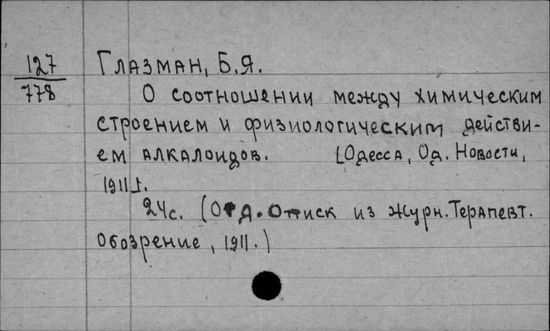 127
778
Глазман, Б.Я.
О соотношении между химическим
строением и физиологическим действи-
ем алкалоидов. [Одесса, Од. Новости,
1911].
24с. (Отд. Оттиск из журн. Терапевт.
Обозрение, 1911.)